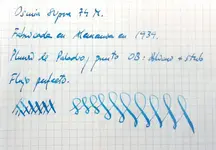 Osmia Supra 74 M.
Fabricada en Alemania en 1934.
Plumín de Paladio, punto OB: oblicuo + stub
Flujo perfecto.